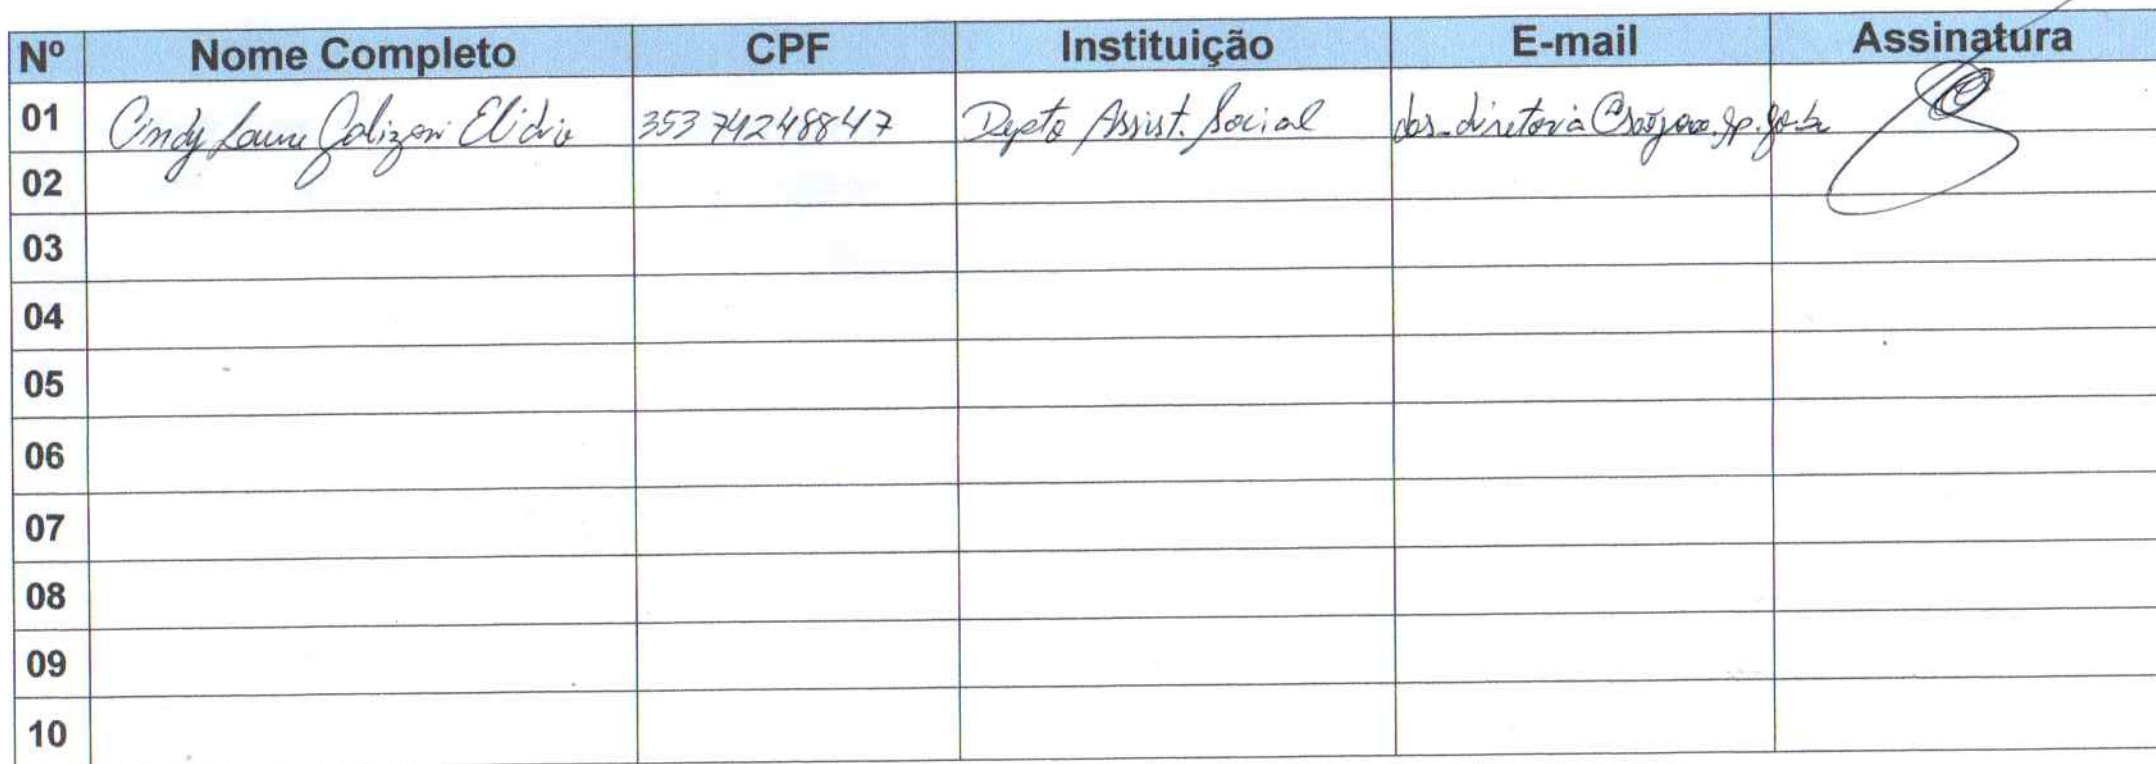 Nº Nome Completo CPF Instituição E-mail Assinatura
01 Cindy 353 74248847 Depto Assist. Social das_diretoria@saojoao.sp.gov.br
02
03
04
05
06
07
08
09
10